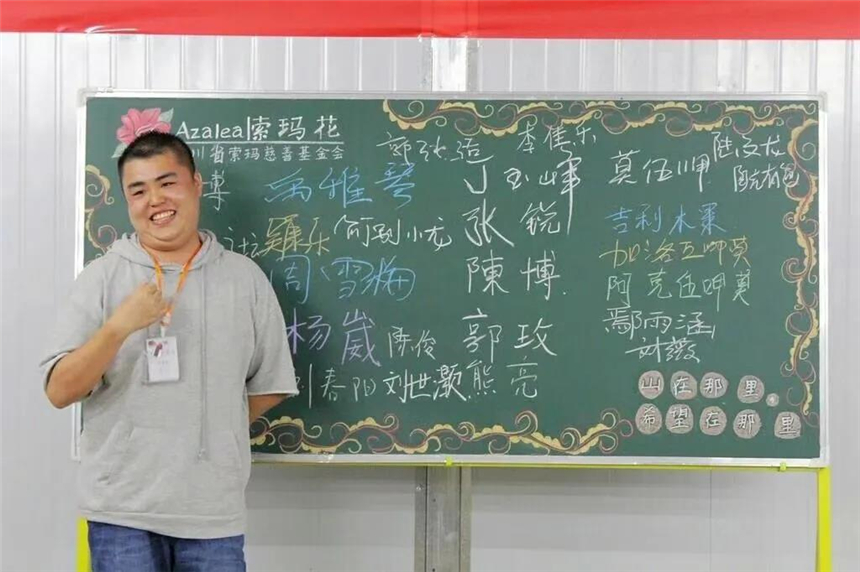 Azalea索玛花
川省索玛慈善基金会
郭张浩
李佳乐
陆文龙
禹雅琴
丁玉峰
莫伍呷
何刚小龙
张锐
吉利木果
周雪梅
陳博
加洛五呷莫
阿克伍呷莫
杨崴
陈俊
郭玫
鄢雨涵
刘薇
春阳
刘世灏
熊亮
山在那里。
希望在那里